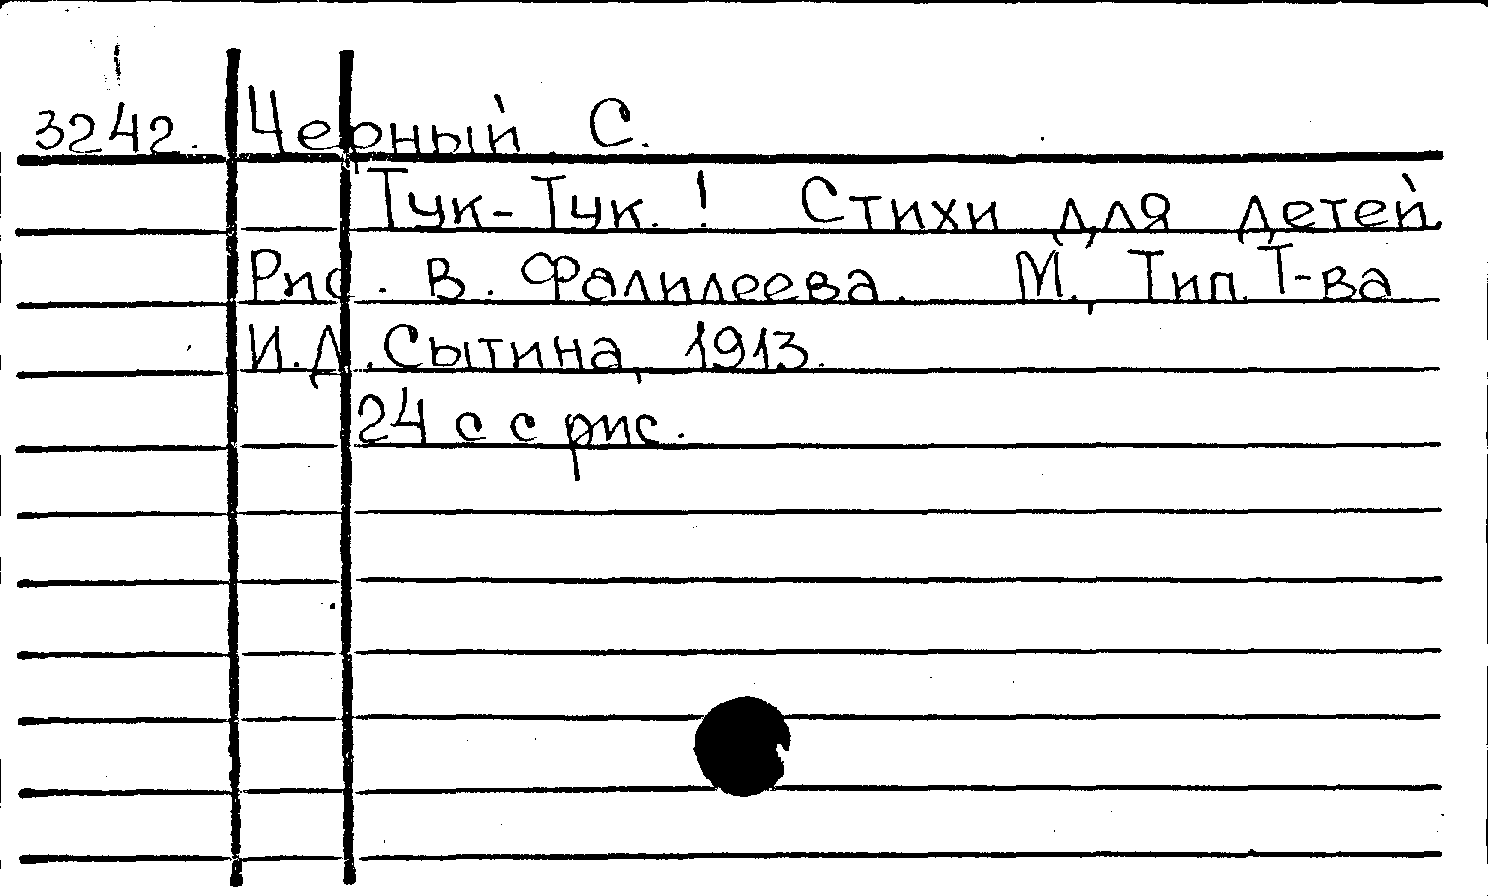 3242. Черный С.
Тук-Тук.! Стихи для детей.
Рис. В. Фалилеева. М., Тип. Т-ва
И.Д. Сытина, 1913.
24 с с рис.